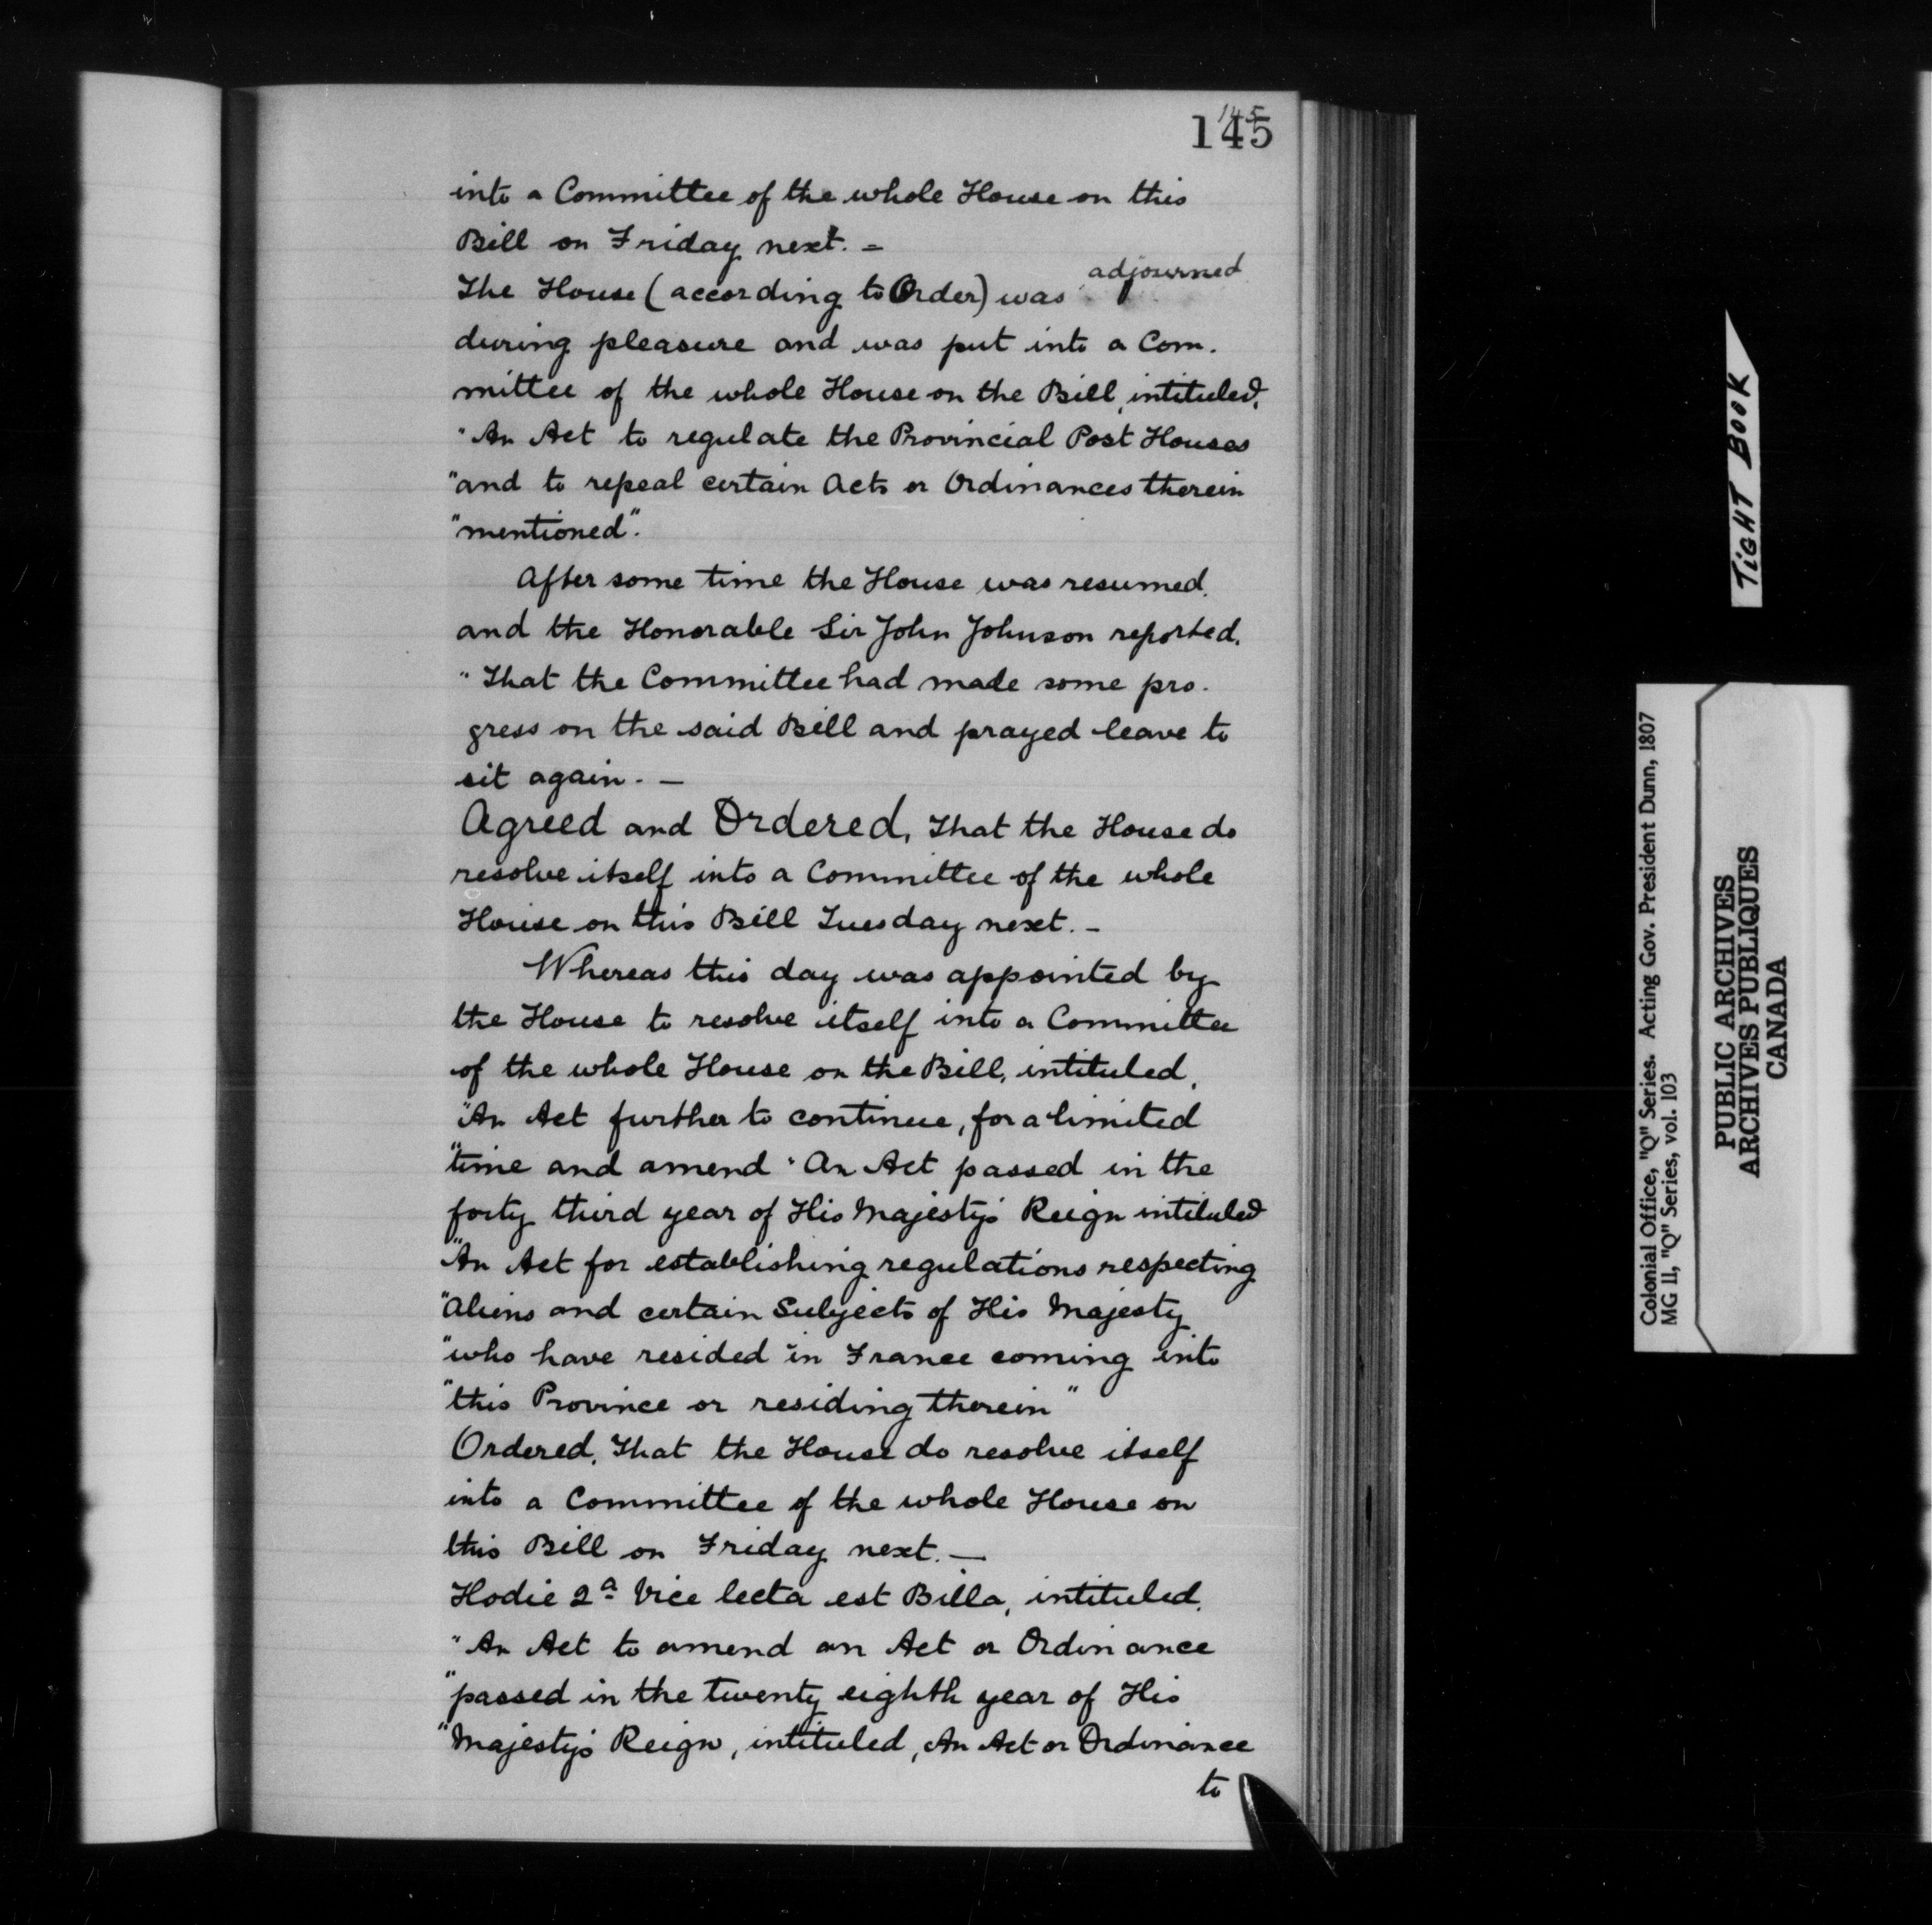 145
145
into a Committee of the whole House on this
Bill on Friday next. =
The House (according to Order) was adjourned
during pleasure and was put into a Com.
mittee of the whole House on the Bill, intituled,
"An Act to regulate the Provincial Post Houses
"and to repeal certain Acts or Ordinances therein
"mentioned".
After some time the House was resumed.
and the Honorable Sir John Johnson reported.
"That the Committee had made some pro.
gress on the said Bill and prayed leave to
sit again. —
Agreed and Ordered, That the House do
resolve itself into a Committee of the whole
House on this Bill Tuesday next. -
Whereas this day was appointed by
the House to resolve itself into a Committee
of the whole House on the Bill, intituled,
"An Act further to continue, for a limited
"time and amend "An Act passed in the
forty third year of His Majesty's Reign intituled
"An Act for establishing regulations respecting
"Aliens and certain Subjects of His Majesty
"who have resided in France coming into
"this Province or residing therein"
Ordered, That the House do resolve itself
into a Committee of the whole House on
this Bill on Friday next. —
Hodie 2a Vice lecta est Billa, intituled,
"An Act to amend an Act or Ordinance
"passed in the twenty eighth year of His
"Majesty's Reign, intituled, An Act or Ordinance
to
TIGHT BOOK
Colonial Office, "Q" Series. Acting Gov. President Dunn, 1807
MG 11, "Q" Series, vol. 103
PUBLIC ARCHIVES
ARCHIVES PUBLIQUES
CANADA